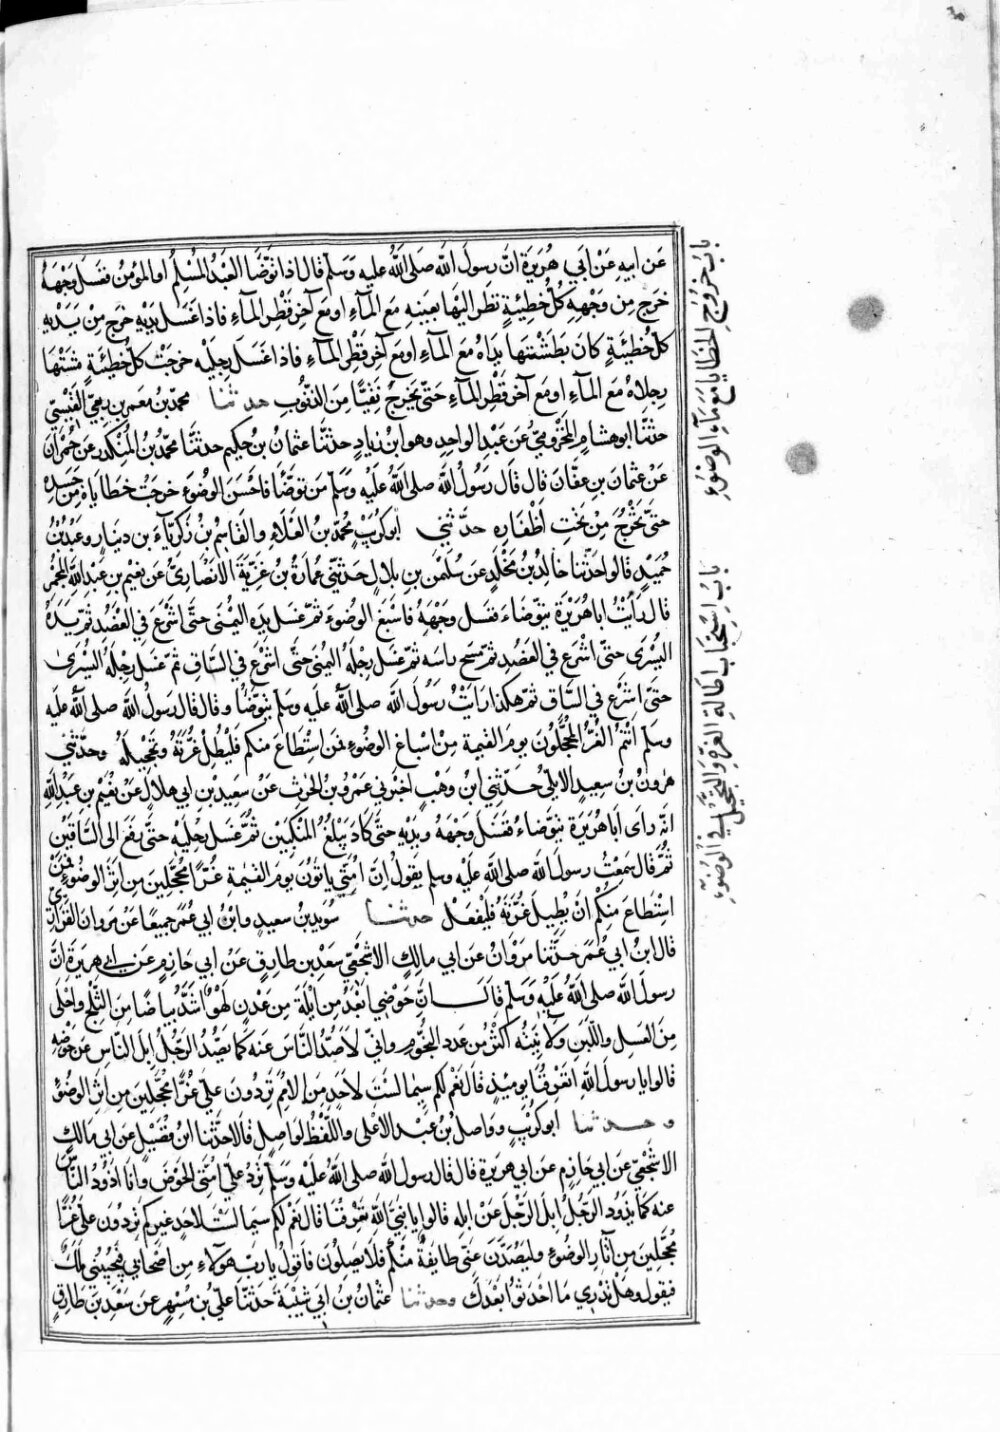 عن ابيه عن ابي هريرة انّ رسول الله صلى الله عليه وسلم قال اذا توضّأ العبد المسلم او المؤمن فغسل وجهه
خرج من وجهه كلّ خطيئةٍ نظر اليها بعينه مع المآء او مع آخر قطر المآء فاذا غسل يديه خرج من يديه
كلّ خطيئةٍ كان بطشتها يداه مع المآء او مع آخر قطر المآء فاذا غسل رجليه خرجت كلّ خطيئةٍ مشتها
رجلاه مع المآء او مع آخر قطر المآء حتّى يخرج نقيًّا من الذنوب حدثنا محمّد بن معمر بن ربعيّ القيسيّ
حدثنا ابو هشامٍ المخزوميّ عن عبد الواحد وهو ابن زيادٍ حدثنا عثمان بن حكيمٍ حدثنا محمّد بن المنكدر عن حُمران
عن عثمان بن عفّان قال قال رسول الله صلى الله عليه وسلم من توضّأ فاحسن الوضوء خرجت خطاياه من جسده
حتّى تخرج من تحت اظفاره حدّثني ابو كريبٍ محمّد بن العلاء والقاسم بن زكريّاء بن دينارٍ وعبد بن
حُميدٍ قالوا حدّثنا خالد بن مخلدٍ عن سليمن بن بلالٍ حدثني عمارة بن غزيّة الانصاريّ عن نعيم بن عبد الله المجمر
قال رايت ابا هريرة يتوضاء فغسل وجهه فاسبغ الوضوء ثمّ غسل يده اليمنى حتّى اشرع في العضد ثمّ يده
اليسرى حتّى اشرع في العضد ثمّ مسح راسه ثمّ غسل رجله اليمنى حتّى اشرع في السّاق ثمّ غسل رجله اليسرى
حتّى اشرع في السّاق ثمّ هكذا رايت رسول الله صلى الله عليه وسلم يتوضّأ وقال قال رسول الله صلى الله عليه
وسلم انتم الغرّ المحجّلون يوم القيمة من اسباغ الوضوء فمن استطاع منكم فليطل غرّته وتحجيله وحدّثني
هرون بن سعيدٍ الايليّ حدّثني ابن وهبٍ اخبرني عمرو بن الحرث عن سعيد بن ابي هلالٍ عن نعيم بن عبد الله
انّه راى ابا هريرة يتوضاء فغسل وجهه ويديه حتّى كاد يبلغ المنكبين ثمّ غسل رجليه حتّى رفع الى السّاقين
ثمّ قال سمعت رسول الله صلى الله عليه وسلم يقول انّ امّتي ياتون يوم القيمة غرًّا محجّلين من اثر الوضوء فمن
استطاع منكم ان يطيل غرّته فليفعل حدثنا سويد بن سعيدٍ وابن ابي عمر جميعًا عن مروان الفزاريّ
قال ابن ابي عمر حدّثنا مروان عن ابي مالكٍ الاشجعيّ سعد بن طارقٍ عن ابي حازمٍ عن ابي هريرة انّ
رسول الله صلى الله عليه وسلم قال انّ حوضي ابعد من ايلة من عدنٍ لهو اشدّ بياضًا من الثلج واحلى
من العسل واللّبن ولآنيته اكثر من عدد النجوم وانّي لاصدّ النّاس عنه كما يصدّ الرّجل ابل النّاس عن حوضه
قالوا يا رسول الله اتعرفنا يوميذٍ قال نعم لكم سيما ليست لاحدٍ من الامم تردون عليّ غرًّا محجّلين من اثر الوضوء
وحدثنا ابو كريبٍ وواصل بن عبد الاعلى واللّفظ لواصلٍ قالا حدّثنا ابن فضيلٍ عن ابي مالكٍ
الاشجعيّ عن ابي حازمٍ عن ابي هريرة قال قال رسول الله صلى الله عليه وسلم ترد عليّ امّتي الحوض وانا اذود النّاس
عنه كما يذود الرّجل ابل الرّجل عن ابله قالوا يا نبيّ الله تعرفنا قال نعم لكم سيما ليست لاحدٍ غيركم تردون عليّ غرًّا
محجّلين من آثار الوضوء وليصدّن عنّي طايفةٌ منكم فلا يصلون فاقول يا ربّ هولاء من اصحابي فيجيبني ملكٌ
فيقول وهل تدري ما احدثوا بعدك وحدثنا عثمان بن ابي شيبة حدّثنا عليّ بن مسهرٍ عن سعد بن طارقٍ
باب خروج الخطايا مع مآء الوضوء
باب استحباب اطالة الغرّة والتحجيل في الوضوء